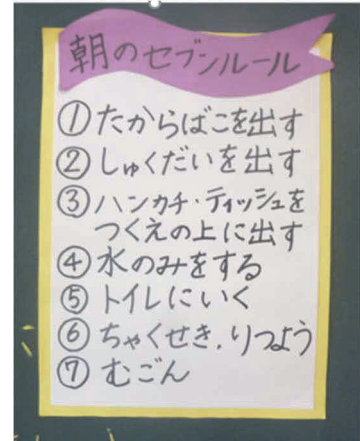 朝のセブンルール
①たからばこを出す
②しゅくだいを出す
③ハンカチ・ティッシュを
つくえの上に出す
④水のみをする
⑤トイレにいく
⑥ちゃくせき、りつよう
⑦むごん